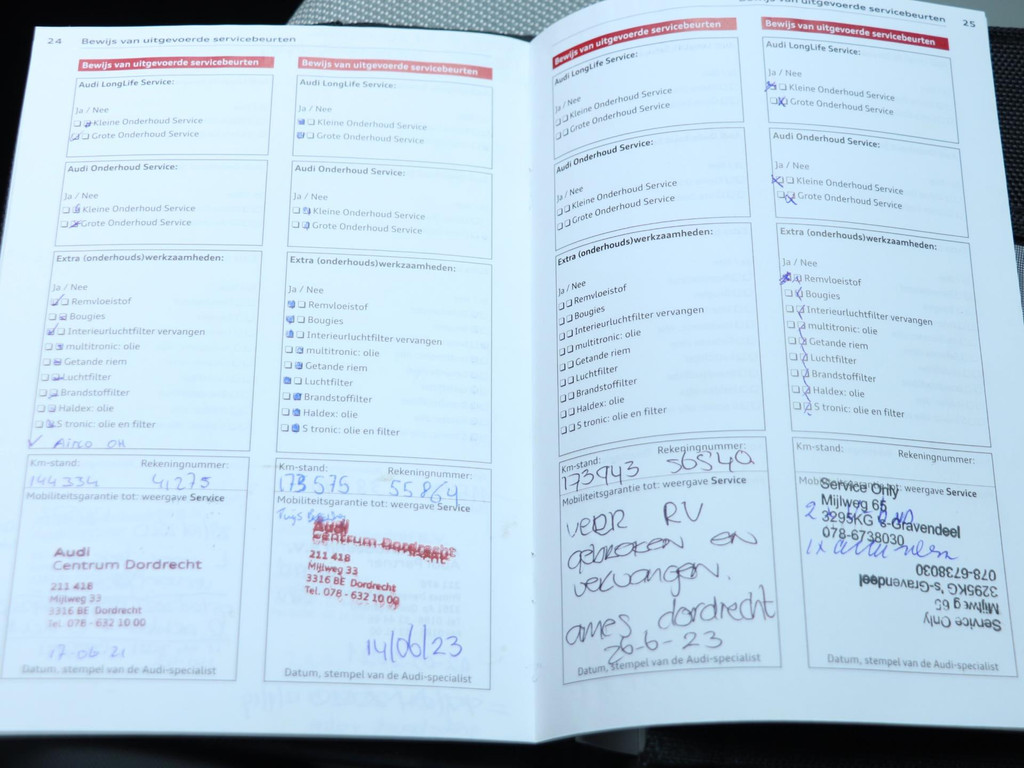 24 Bewijs van uitgevoerde servicebeurten
Bewijs van uitgevoerde servicebeurten
Audi LongLife Service:
Ja / Nee
Kleine Onderhoud Service
Grote Onderhoud Service
Audi Onderhoud Service:
Ja / Nee
Kleine Onderhoud Service
Grote Onderhoud Service
Extra (onderhouds)werkzaamheden:
Ja / Nee
Remvloeistof
Bougies
Interieurluchtfilter vervangen
multitronic: olie
Getande riem
Luchtfilter
Brandstoffilter
Haldex: olie
S tronic: olie en filter
Airco OK
Km-stand: Rekeningnummer:
144334 41275
Mobiliteitsgarantie tot: weergave Service
Audi
Centrum Dordrecht
211 418
Mijlweg 33
3316 BE Dordrecht
Tel. 078 - 632 10 00
17-06-21
Datum, stempel van de Audi-specialist
Bewijs van uitgevoerde servicebeurten
Audi LongLife Service:
Ja / Nee
Kleine Onderhoud Service
Grote Onderhoud Service
Audi Onderhoud Service:
Ja / Nee
Kleine Onderhoud Service
Grote Onderhoud Service
Extra (onderhouds)werkzaamheden:
Ja / Nee
Remvloeistof
Bougies
Interieurluchtfilter vervangen
multitronic: olie
Getande riem
Luchtfilter
Brandstoffilter
Haldex: olie
S tronic: olie en filter
Km-stand: Rekeningnummer:
173575 55864
Mobiliteitsgarantie tot: weergave Service
Audi
Centrum Dordrecht
211 418
Mijlweg 33
3316 BE Dordrecht
Tel. 078 - 632 10 00
14/06/23
Datum, stempel van de Audi-specialist
Bewijs van uitgevoerde servicebeurten 25
Bewijs van uitgevoerde servicebeurten
Audi LongLife Service:
Ja / Nee
Kleine Onderhoud Service
Grote Onderhoud Service
Audi Onderhoud Service:
Ja / Nee
Kleine Onderhoud Service
Grote Onderhoud Service
Extra (onderhouds)werkzaamheden:
Ja / Nee
Remvloeistof
Bougies
Interieurluchtfilter vervangen
multitronic: olie
Getande riem
Luchtfilter
Brandstoffilter
Haldex: olie
S tronic: olie en filter
Km-stand: Rekeningnummer:
173943 56540
Mobiliteitsgarantie tot: weergave Service
veer RV
gebroken en
vervangen.
ames dordrecht
26-6-23
Datum, stempel van de Audi-specialist
Bewijs van uitgevoerde servicebeurten
Audi LongLife Service:
Ja / Nee
Kleine Onderhoud Service
Grote Onderhoud Service
Audi Onderhoud Service:
Ja / Nee
Kleine Onderhoud Service
Grote Onderhoud Service
Extra (onderhouds)werkzaamheden:
Ja / Nee
Remvloeistof
Bougies
Interieurluchtfilter vervangen
multitronic: olie
Getande riem
Luchtfilter
Brandstoffilter
Haldex: olie
S tronic: olie en filter
Km-stand: Rekeningnummer:
weergave Service
Service Only
Mijlweg 65
3295KG 's-Gravendeel
078-6738030
078-6738030
3295KG 's-Gravendeel
Mijlweg 65
Service Only
Datum, stempel van de Audi-specialist